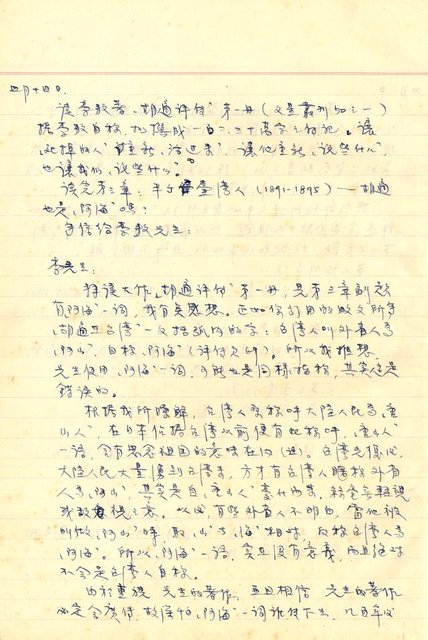 四月十四日.
讀李敖著《胡適評傳》第一册(文星叢刊50之一)
據李敖自稱,擬撰成一百二、三十萬字之傳記。讓
死掉的人「重新」活過來,讓他重新「說些什麼」,
也讓我們「說些什麼」。
讀完第三章:半個臺灣人(1891-1895)—胡適
也是「阿海」嗎:
寫信給李敖先生:
李先生:
拜讀大作《胡適評傳》第一册,見第三章副題
有「阿海」一詞,我有異想。正如你引用的
《胡適在台灣》一文括弧內的字:台灣人叫外省人為
「阿山」,自稱「阿海」(評傳)。所以我推想,
先生使用「阿海」一詞,可能也是同樣指稱,其實這是
錯誤的。
根據我所瞭解,台灣人原稱呼大陸人民為「唐
山人」,在日本佔據台灣以前便有此稱呼,「唐山人」
一語,含有思念祖國的意味在內。台灣光復後,
大陸人民大量湧到台灣來,方才有台灣人瞎稱外省
人為「阿山」,其實是自「唐山人」變化而來,稍含輕視
或敵視之意。以後有些外省人不明白,當他被
叫做「阿山」時,取「山」與「海」相對,反稱台灣人為
「阿海」。所以「阿海」一語,實在沒有意義,而且絕對
不會是台灣人自稱。
由於重視 先生的著作,並且相信 先生的著作
必定會廣傳,故深怕「阿海」一詞誤傳下去,几百年後